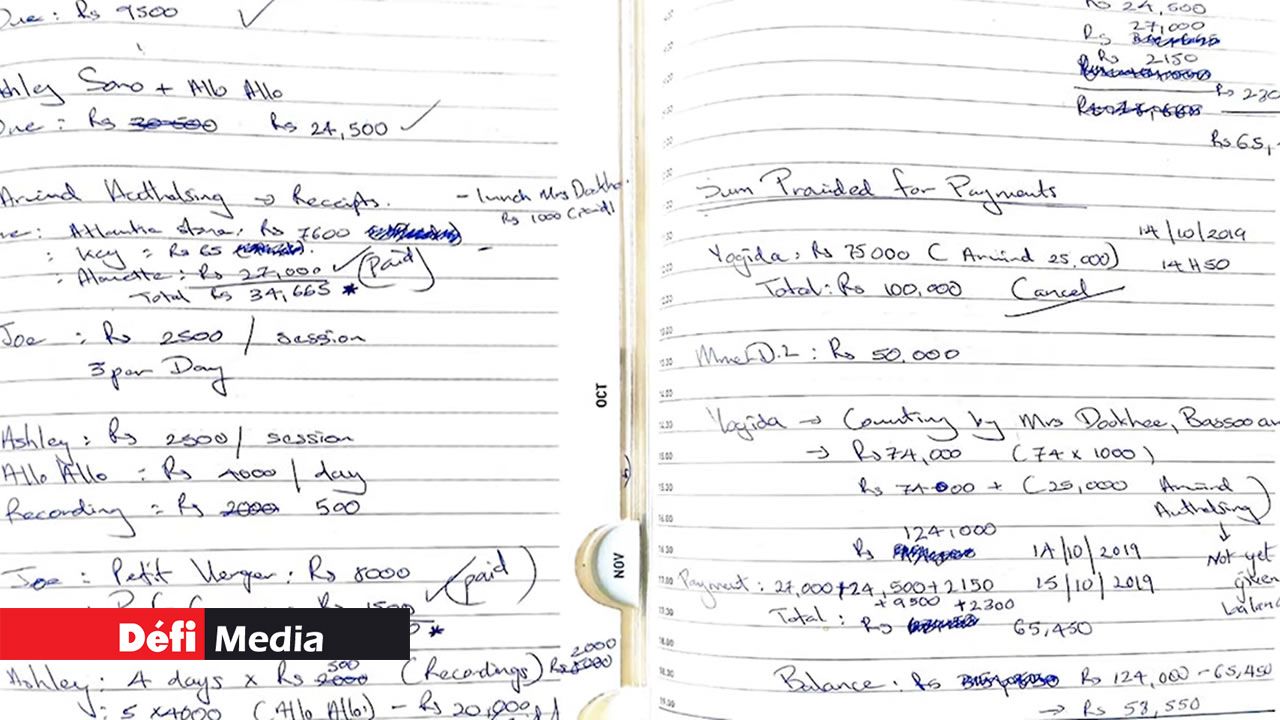 Due: Rs 9500 ✓
Ashley Sono + Allo Allo
Due: Rs 30500 Rs 24,500 ✓
→ Receipts.
- lunch Mrs Dookhe
Rs 1000 (Paid)
: Rs 7600
: Key = Rs 65
: Alouette: Rs 27,000 ✓ (Paid)
Total Rs 34,665 *
Joe : Rs 2500 / session
3 per Day
Ashley: Rs 2500/ session
Allo Allo = Rs 4000 / day
Recording = Rs 2000 500
Joe : Petit Verger: Rs 8000 ✓ (paid)
Rs 1500
*
Ashley: 4 days x Rs 2000 500 (Recordings) Rs 2000
: 5 x4000 (Allo Allo) - Rs 20,000
OCT
NOV
Rs 24,500
27,000
Rs
Rs 2150
Rs 230
Rs 65,
Sum Praided for Payments
14/10/2019
Yogida: Rs 75000 ( Arvind 25,000) 14H50
Total: Rs 100,000 Cancel
D.2 : Rs 50.000
Yogida → Counting by Mrs Dookhee, Bassoo an
→ Rs 74,000 (74 x 1000)
Rs 74000 + (25,000 Arvind
Authelsing)
↓
124,000
Rs 14/10/2019 Not yet
given
Payment: 27,000+24,500+2150 15/10/2019
+9500 +2300
Total: Rs 65,450
Balance: Rs Rs 124,000 - 65,450
→ Rs 53,550
12.00
13.00
13.30
14.00
14.30
15.00
15.30
16.00
16.30
17.00
17.30
18.00
18.30
19.00
Défi Media